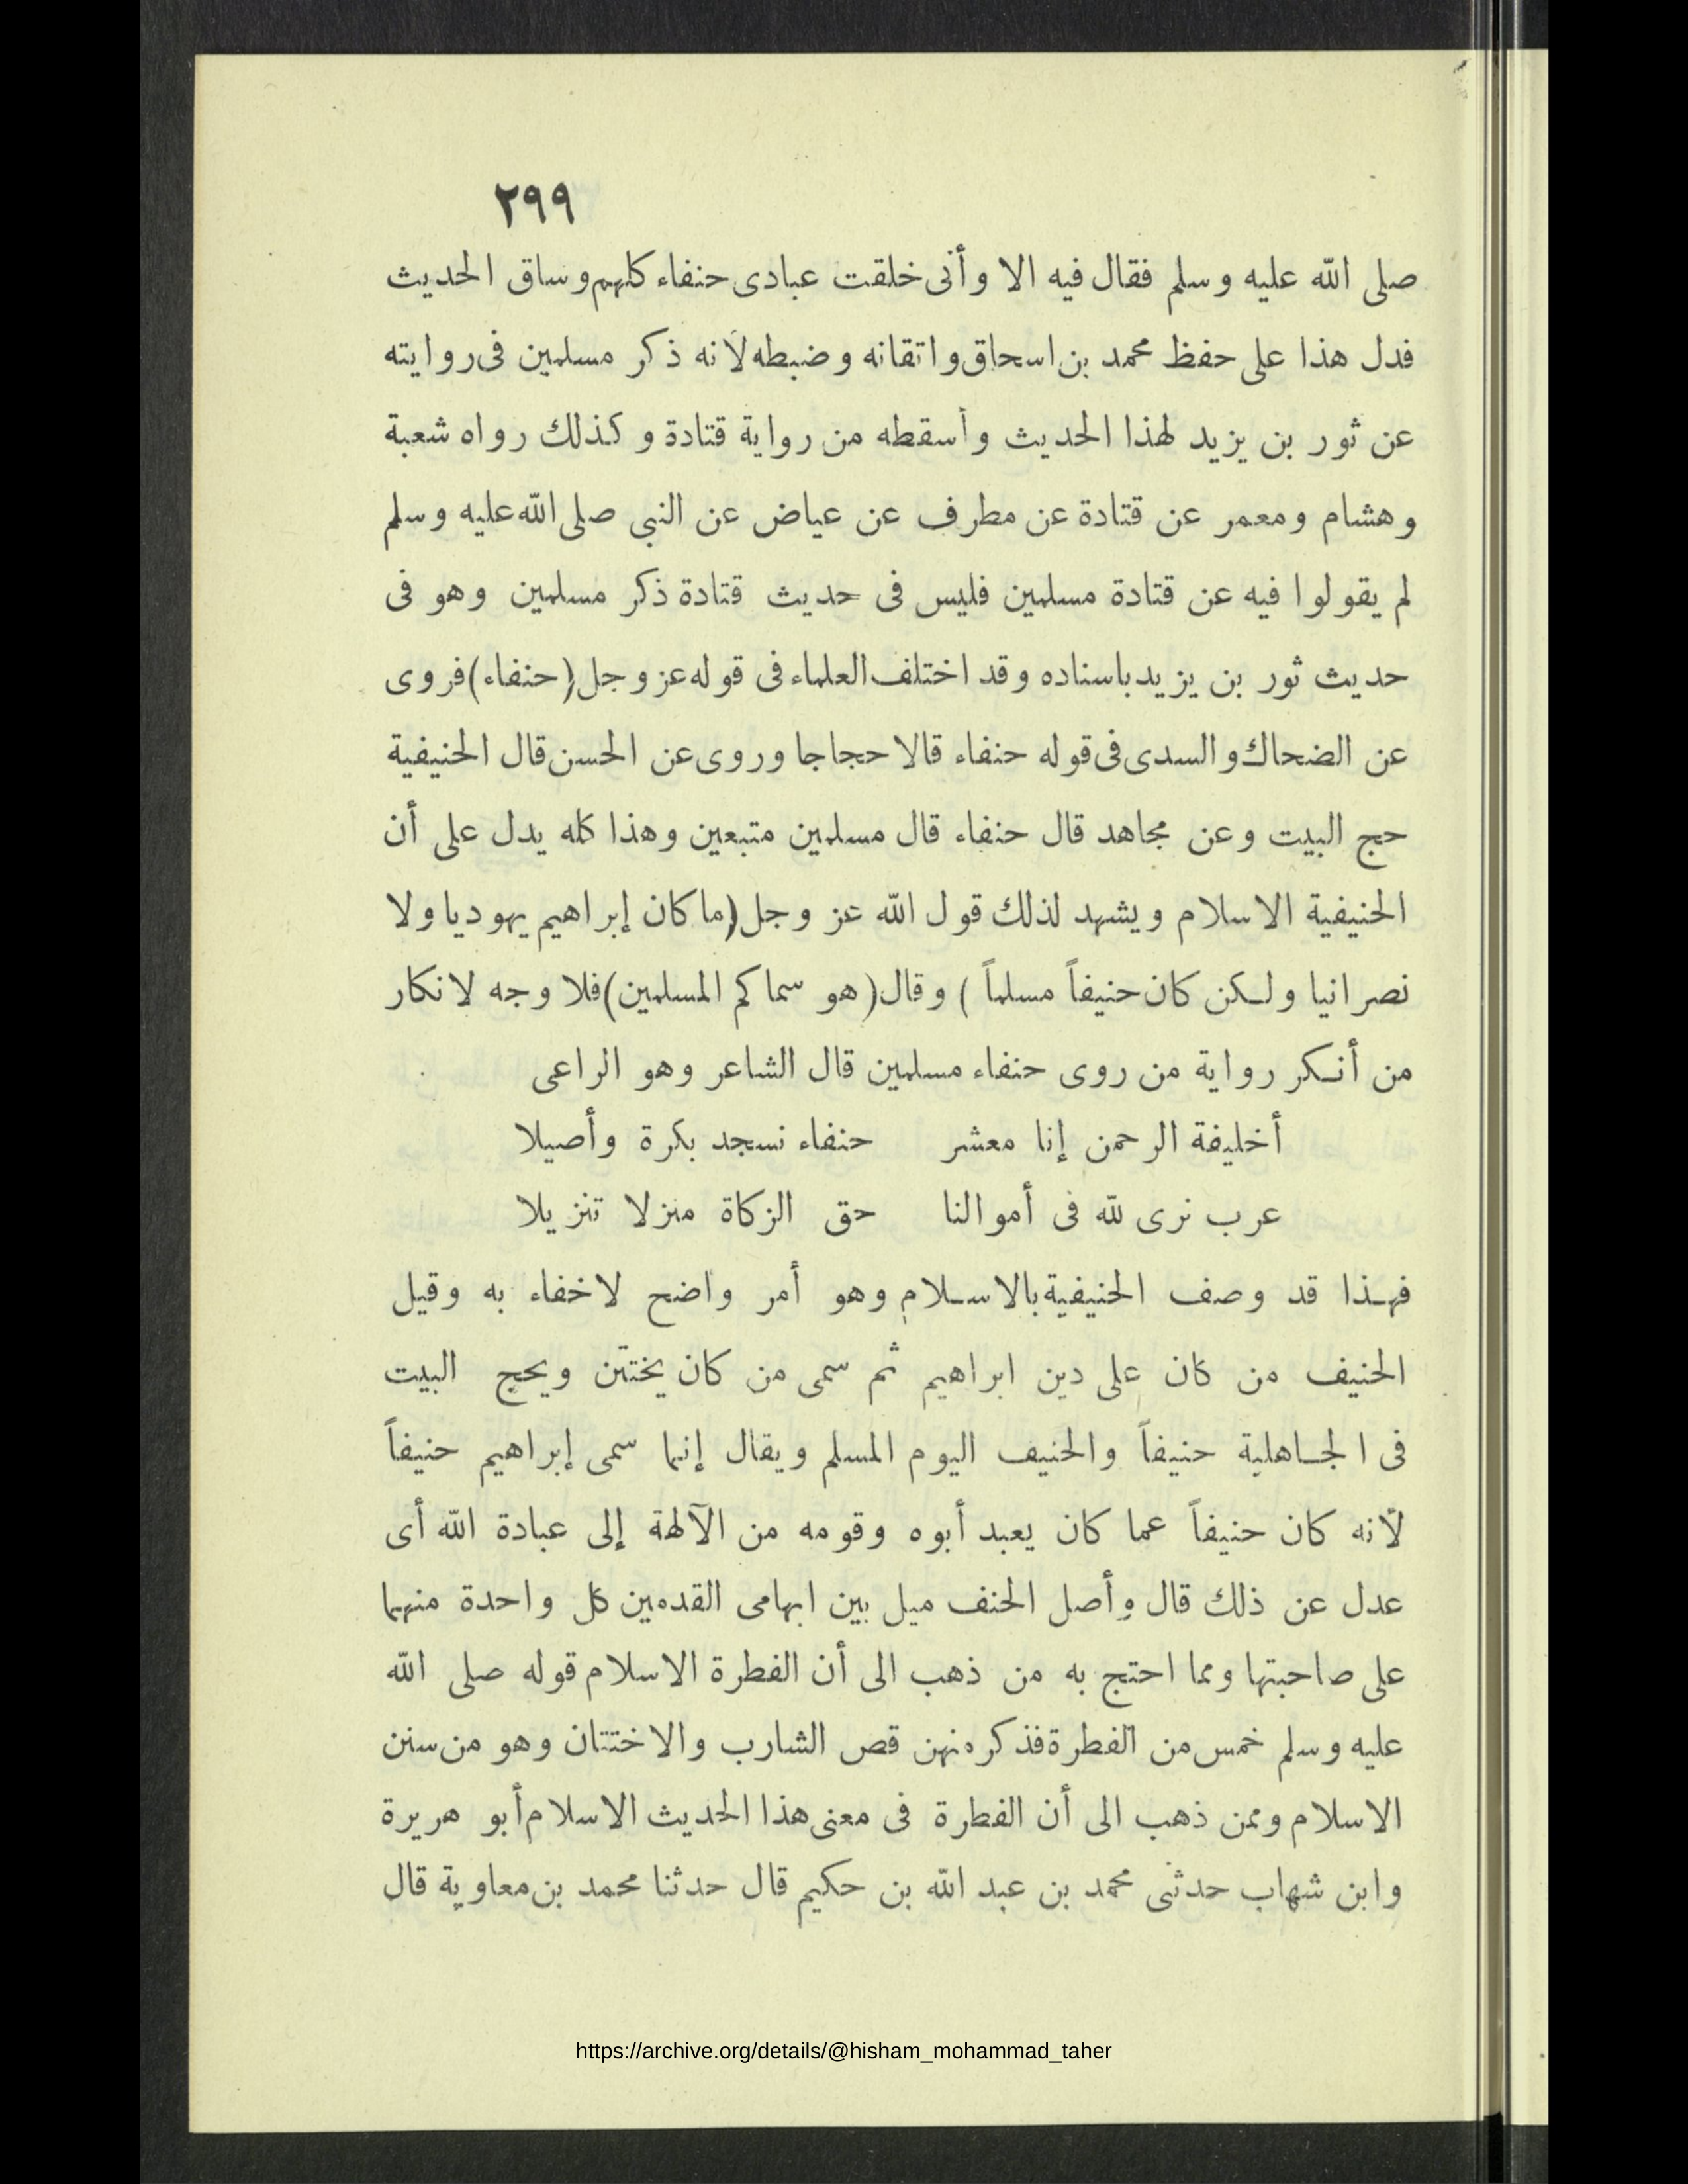 ٢٩٩
صلى الله عليه وسلم فقال فيه الا وأنى خلقت عبادى حنفاء كلهم وساق الحديث
فدل هذا على حفظ محمد بن اسحاق واتقانه وضبطه لأنه ذكر مسلمين فى روايته
عن ثور بن يزيد لهذا الحديث وأسقطه من رواية قتادة وكذلك رواه شعبة
وهشام ومعمر عن قتادة عن مطرف عن عياض عن النبى صلى الله عليه وسلم
لم يقولوا فيه عن قتادة مسلمين فليس فى حديث قتادة ذكر مسلمين وهو فى
حديث ثور بن يزيد باسناده وقد اختلف العلماء فى قوله عز وجل (حنفاء) فروى
عن الضحاك والسدى فى قوله حنفاء قالا حجاجا وروى عن الحسن قال الحنيفية
حج البيت وعن مجاهد قال حنفاء قال مسلمين متبعين وهذا كله يدل على أن
الحنيفية الاسلام ويشهد لذلك قول الله عز وجل (ما كان إبراهيم يهوديا ولا
نصرانيا ولكن كان حنيفاً مسلماً ) وقال (هو سماكم المسلمين) فلا وجه لانكار
من أنكر رواية من روى حنفاء مسلمين قال الشاعر وهو الراعى
أخليفة الرحمن إنا معشر حنفاء نسجد بكرة وأصيلا
عرب نرى لله فى أموالنا حق الزكاة منزلا تنزيلا
فهذا قد وصف الحنيفية بالاسلام وهو أمر واضح لاخفاء به وقيل
الحنيف من كان على دين ابراهيم ثم سمى من كان يختتن ويحج البيت
فى الجاهلية حنيفاً والحنيف اليوم المسلم ويقال إنما سمى إبراهيم حنيفاً
لأنه كان حنيفاً عما كان يعبد أبوه وقومه من الآلهة إلى عبادة الله أى
عدل عن ذلك قال وأصل الحنف ميل بين ابهامى القدمين كل واحدة منهما
على صاحبتها ومما احتج به من ذهب الى أن الفطرة الاسلام قوله صلى الله
عليه وسلم خمس من الفطرة فذكر منهن قص الشارب والاختتان وهو من سنن
الاسلام وممن ذهب الى أن الفطرة فى معنى هذا الحديث الاسلام أبو هريرة
وابن شهاب حدثنى محمد بن عبد الله بن حكيم قال حدثنا محمد بن معاوية قال
https://archive.org/details/@hisham_mohammad_taher